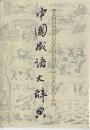 中国成语大辞典